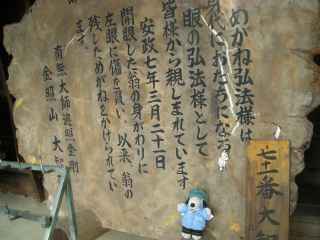 めがね弘法様は
身代におたちになる
眼の弘法様として
皆様から親しまれています
安政七年三月二十一日
開眼した翁の身がわりに
左眼に傷を負い、以来、翁の
残しためがねをかけられてい
ます。
金照山 大
七二番大